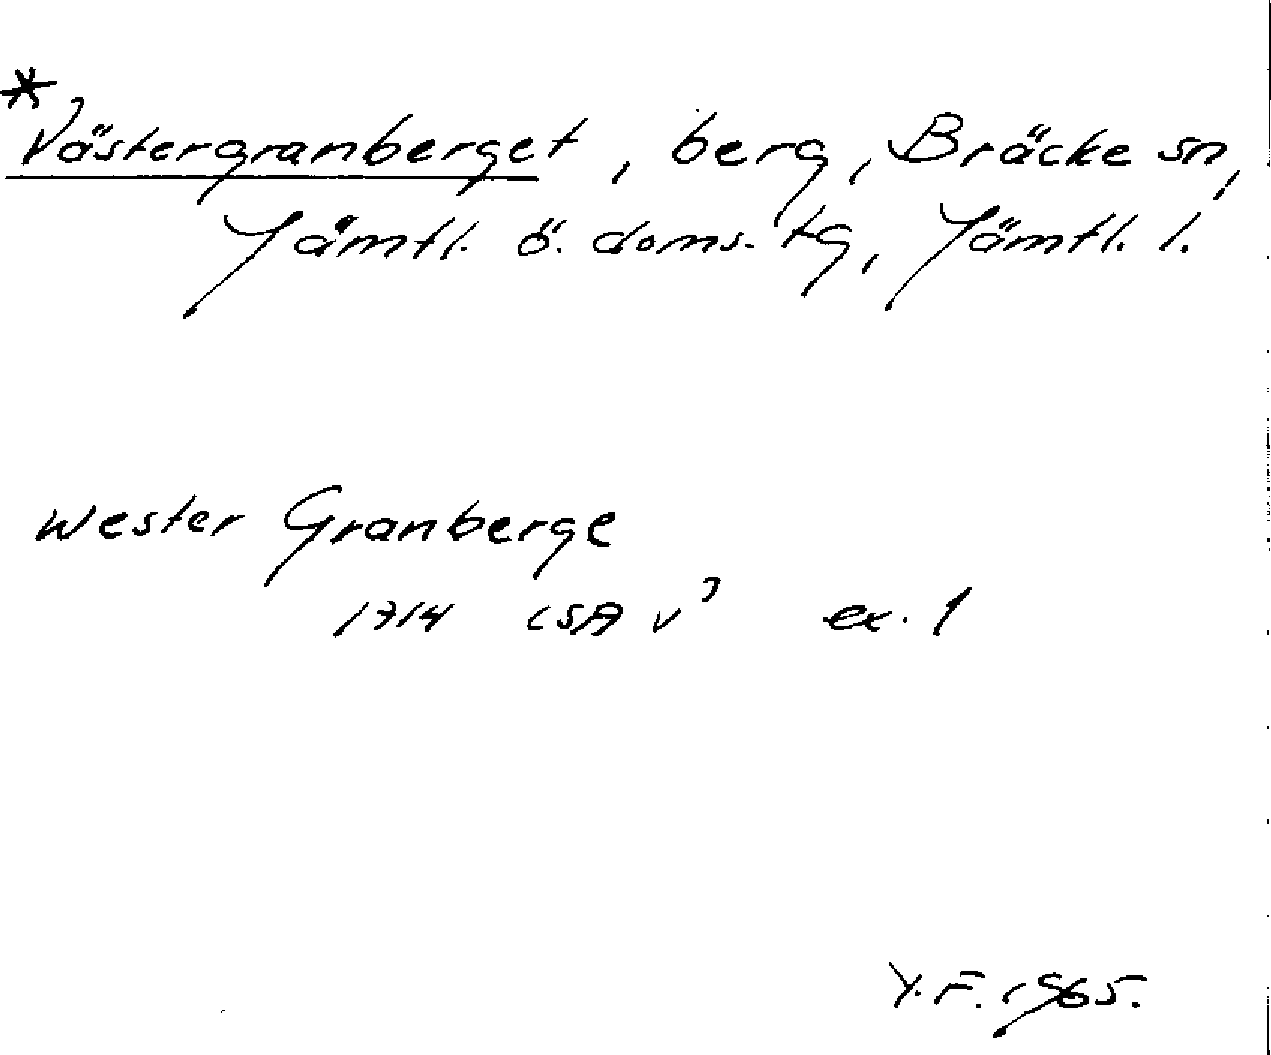 *Västergranberget, berg, Bräcke sn,
Jämtl. ö. doms. tg, Jämtl. l.
Wester Granberge
1714 LSA V³ ex. 1
Y.F. 1965.